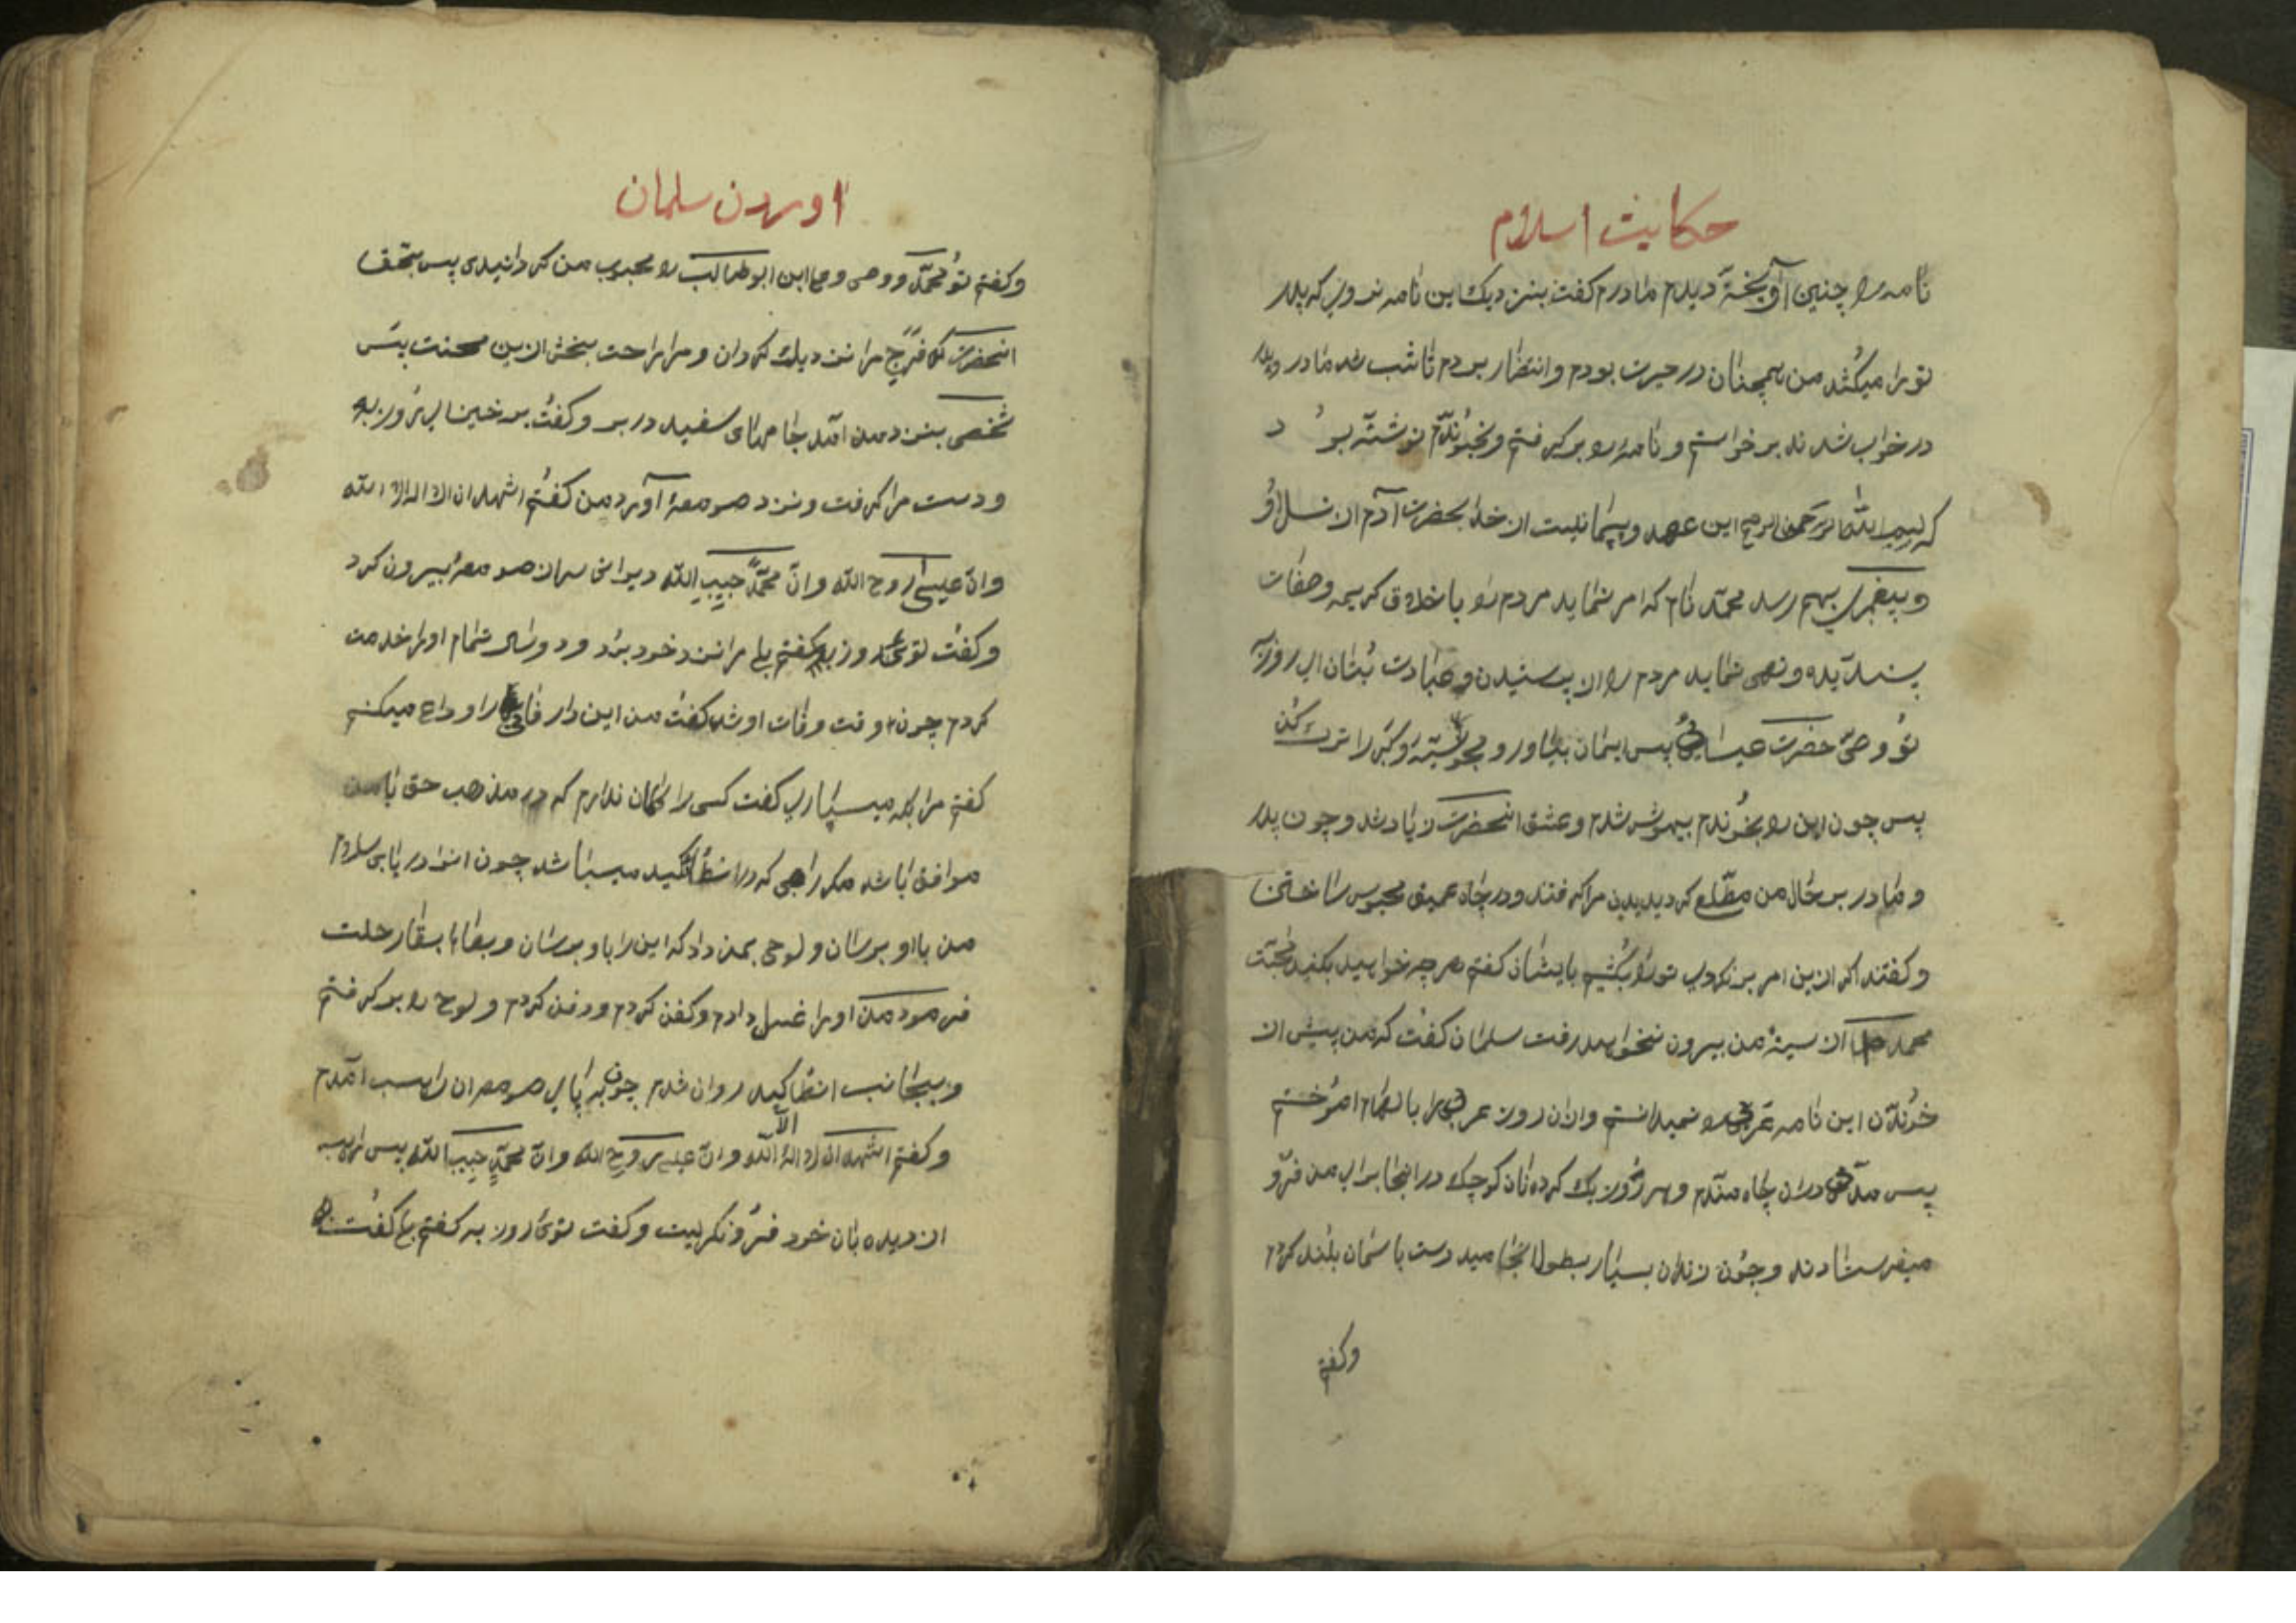 حکایت اسلام
نامه را چنین آویخته دیدم مادرم گفت بنزدیک این نامه نروی که پدر
تو را میکشد من همچنان در حیرت بودم و انتضار بردم تا شب شد مادر و پدر
در خواب شدند برخواستم و نامه رو برگرفتم و بخوندم نوشته بود
که بسم الله الرحمن الرحیم این عهد و پیمانیست از خدا بحضرت آدم از نسل او
و پیغمبری بهم رسد محمد نام که امر نماید مردم را باخلاق کریمه و صفات
پسندیده و نهی نماید مردم را از پرستیدن و عبادت بتان ای روزبه
تو وصی حضرت عیسایی پس ایمان بیاور و مجوسیه و گبر را ترک کن
پس چون این رو بخوندم بیهوش شدم و عشق انحضرت زیاد شد و چون پدر
و مادر بر حال من مطلع گردیدیدن مرا گرفتند و در چاه عمیق محبوس ساختن
و گفتند اگر ازین امر برنگردی تو را بکشیم بایشان گفتم هر چه خواهید بکنید محبت
محمد از سینه من بیرون نخواهد رفت سلمان گفت که من پیش از
خوندن این نامه عربی رو نمیدانستم و از ان روز عربی را بالهام اموختم
پس مدتی در ان چاه مندم و هر روز یک گرده نان کوچک در انجا برای من فرو
میفرستادند و چون زندان بسیار بطول انجامید دست باسمان بلند کردم
وگفتم
اوردن سلمان
وگفتم تو محمد و وصی وی ابن ابوطالب رو محبوب من گردانیدی پس بحق
انحضرت که فرج مرا نزدیک گردان و مرا راحت بخش ازین محنت پس
شخصی بنزد من امد جامهای سفید در بر و گفت برخیز ای روزبه
و دست مرا گرفت و نزد صومعه آورد من گفتم اشهد ان لا اله الا الله
وان عیسی روح الله وان محمدا حبیب الله دیرانی سر از صومعه بیرون کرد
وگفت توئی روزبه گفتم بلی مرا نزد خود برد و دو سال تمام او را خدمت
کردم چون وقت وفات او شد گفت من این دار فانی را وداع میکنم
گفتم مرا بکه میسپاری گفت کسی را گمان ندارم که در مذهب حق با من
موافق باشد مگر راهبی که در انطاکیه میباشد چون او را دریابی سلام
من باو برسان و لوحی بمن داد که این را باو برسان و بعالم بقا رحلت
فرمود من او را غسل دادم وکفن کردم و دفن کردم و لوح رو برگرفتم
و بجانب انطاکیه روان شدم چون به پای صومعه ان راهب امدم
وگفتم اشهد ان لا اله الا الله وان عیسی روح الله وان محمد حبیب الله پس راهب
از دیده بان خود فرو نگریست و گفت توئی روزبه گفتم بلی گفت